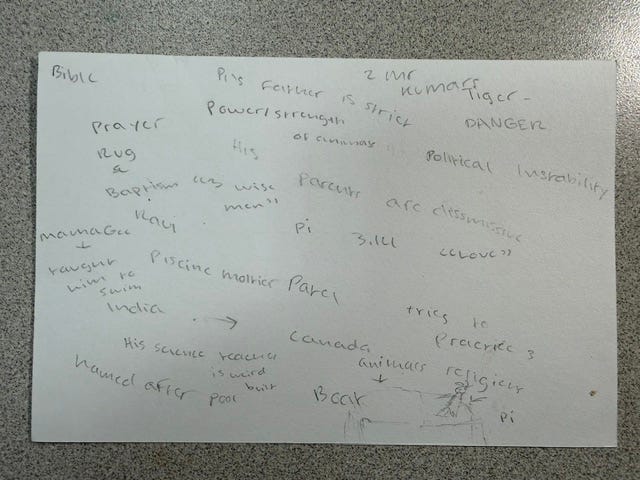 Bible
2 Mr Kumars
Pi's Father is strict
Tiger -
DANGER
Power/strength
of animals
Prayer
Rug
&
His
Parents are dissmissive
Political Instability
Baptism
"3 wise
men"
Ravi
Pi 3.14
"Love"
mamaGee
↓
taught
him to
swim
Piscine molitor Patel
India → Canada
tries to
Practice 3
religions
His science teacher
is weird
built
animals
↓
Named after pool
Boat
Pi